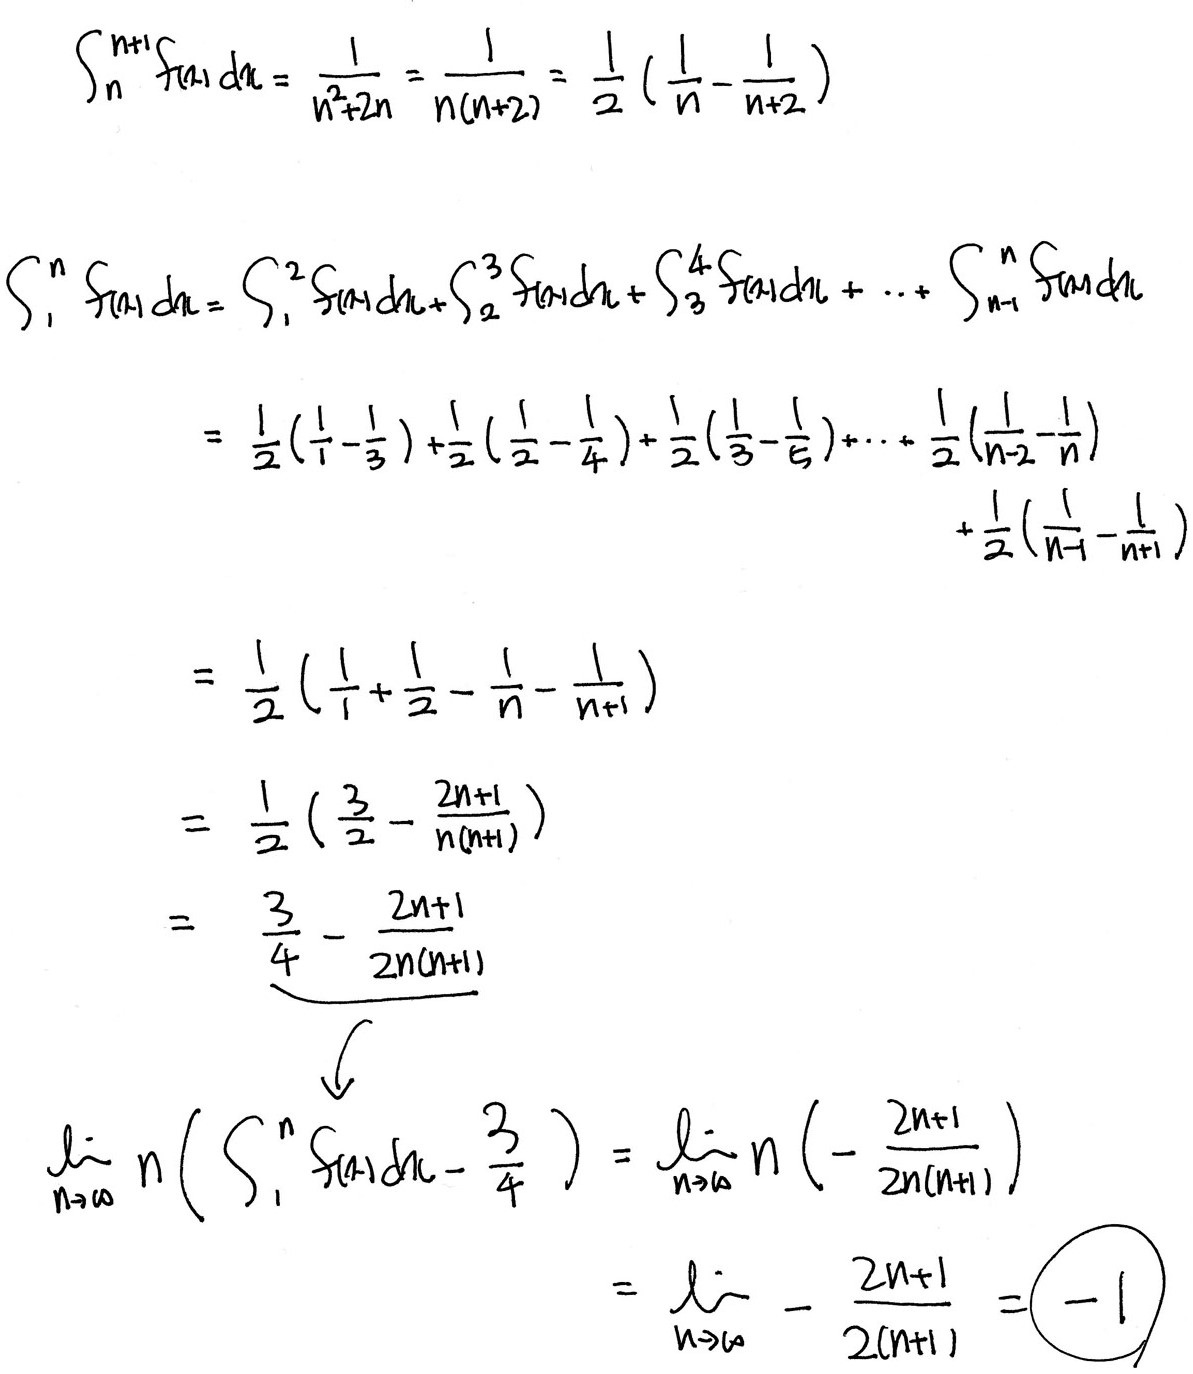 ∫_n^{n+1} f(x)dx = 1/(n²+2n) = 1/(n(n+2)) = 1/2 (1/n - 1/(n+2))
∫_1^n f(x)dx = ∫_1^2 f(x)dx + ∫_2^3 f(x)dx + ∫_3^4 f(x)dx + ... + ∫_{n-1}^n f(x)dx
= 1/2 (1/1 - 1/3) + 1/2 (1/2 - 1/4) + 1/2 (1/3 - 1/5) + ... + 1/2 (1/(n-2) - 1/n)
+ 1/2 (1/(n-1) - 1/(n+1))
= 1/2 (1/1 + 1/2 - 1/n - 1/(n+1))
= 1/2 (3/2 - (2n+1)/(n(n+1)))
= 3/4 - (2n+1)/(2n(n+1))
lim_{n→∞} n(∫_1^n f(x)dx - 3/4) = lim_{n→∞} n(- (2n+1)/(2n(n+1)))
= lim_{n→∞} - (2n+1)/(2(n+1)) = -1